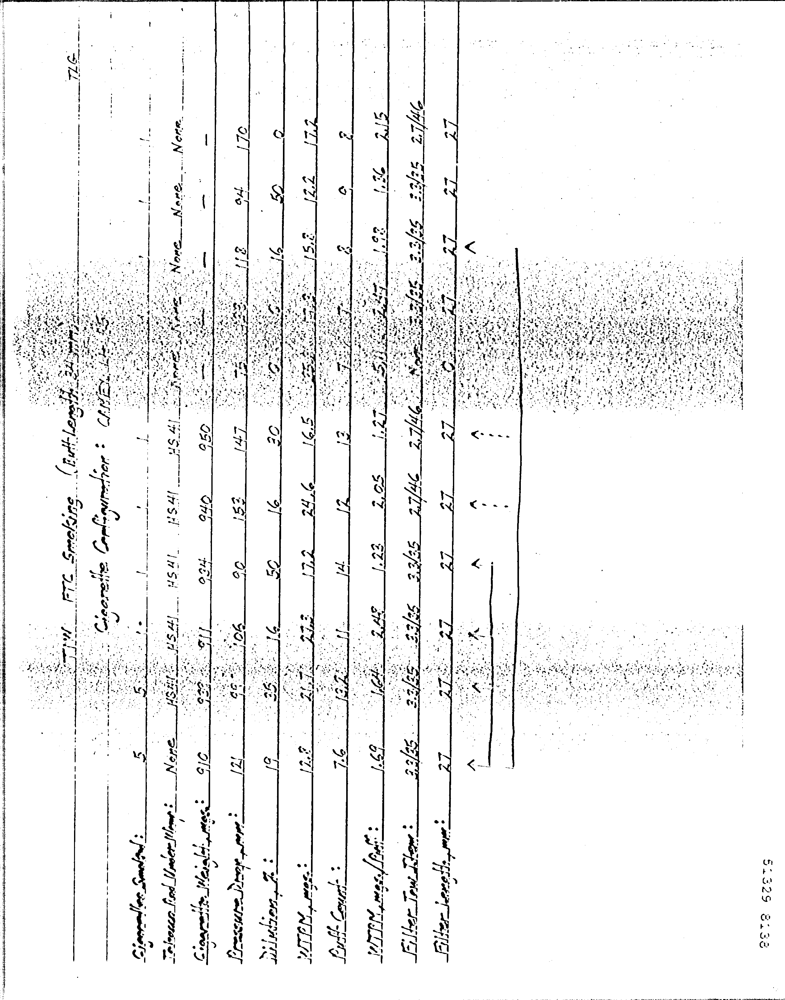 TLG
FTC Smoking (Butt Length 34 mm)
Cigarette Configuration: CAMEL LIGHTS
Cigarettes Smoked: 5 5
Tobacco Rod Under Wrap: None HS41 HS41 HS41 HS41 HS41 None None None None None
Cigarette Weight, mgs: 910 911 934 940 950 — — — — —
Pressure Drop, mm: 121 99 106 90 153 147 75 118 94 170
Dilution, %: 19 35 16 50 16 30 0 0 16 50 0
WTPM, mgs: 12.8 21.7 27.3 17.2 24.6 16.5 15.8 12.2 17.2
Puff Count: 7.6 13.2 11 14 12 13 7 7 8 9 8
WTPM, mgs/Puff: 1.69 1.64 2.48 1.23 2.05 1.27 5.11 2.47 1.98 1.36 2.15
Filter Tow Item: 3.3/35 3.3/35 3.3/35 3.3/35 2.7/46 2.7/46 None 3.3/35 3.3/35 3.3/35 2.7/46
Filter Length, mm: 27 27 27 27 27 27 0 27 27 27 27
51329 8138